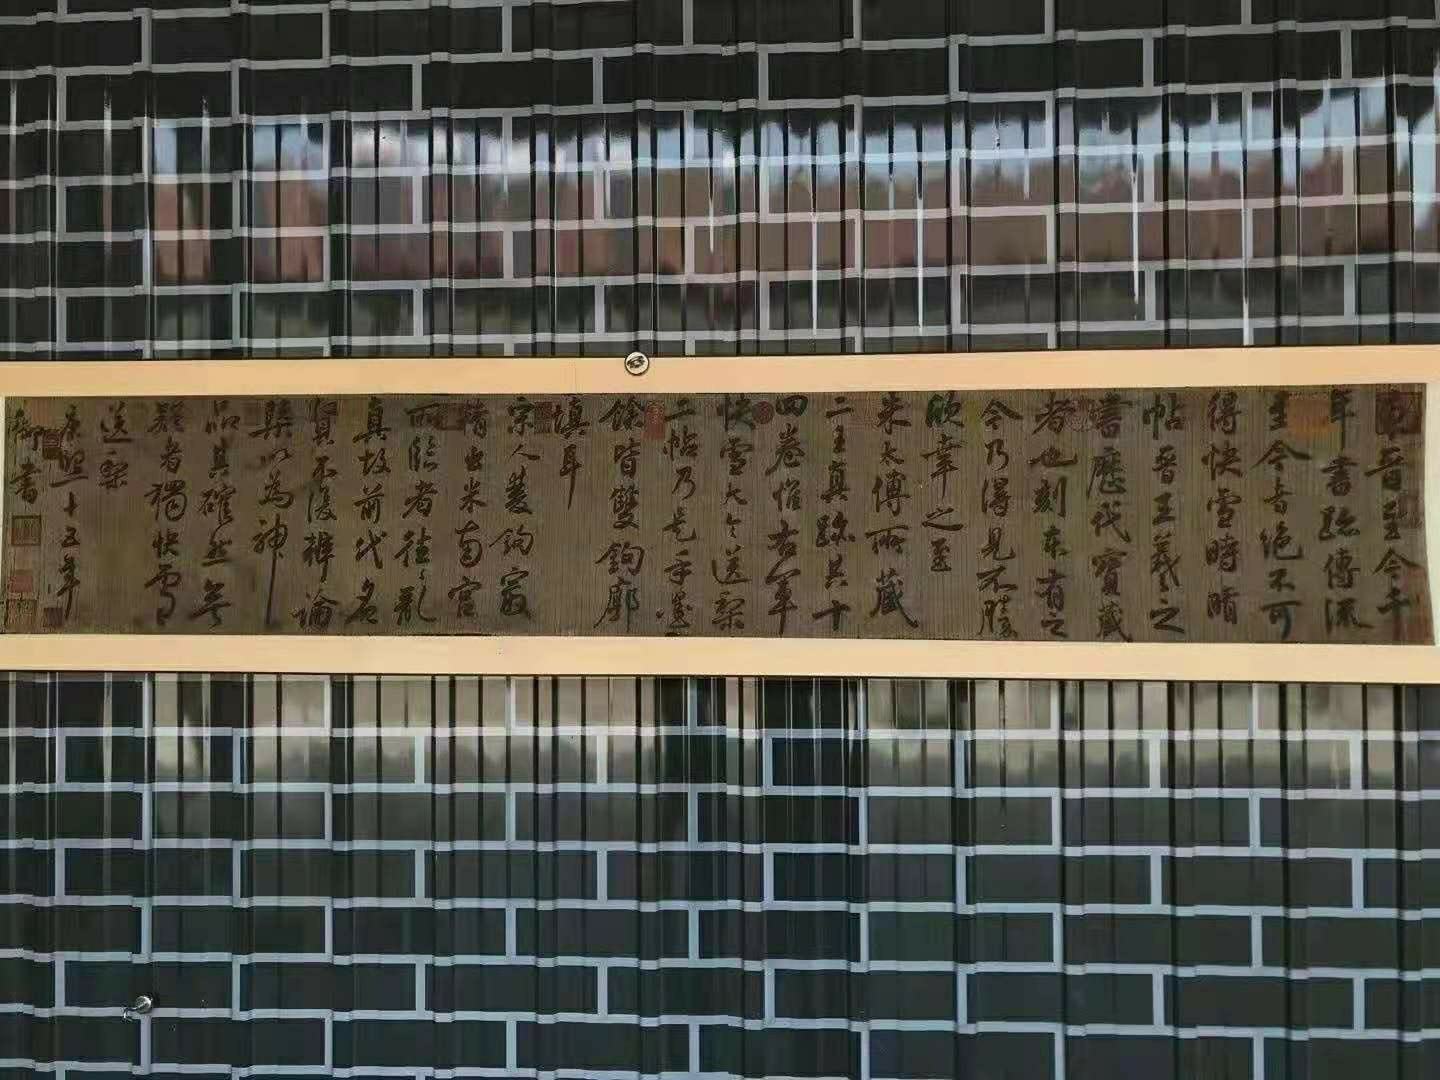 東晉至今千
年書跡傳流
至今者絕不可
得快雪時晴
帖晉王羲之
書歷代寶藏
者也刻本有之
今乃得見不勝
欣幸之至
朱太傅所藏
二王真跡共十
四卷惟右軍
快雪大令送梨
二帖乃是手墨
餘皆雙鉤廓
填耳
宋人雙鉤最
精出米南宮
所臨者往往亂
真故前代名
賢不復辨論
槩以為神
品其確然無
疑者獨快雪
送梨
康熙十五年
御書